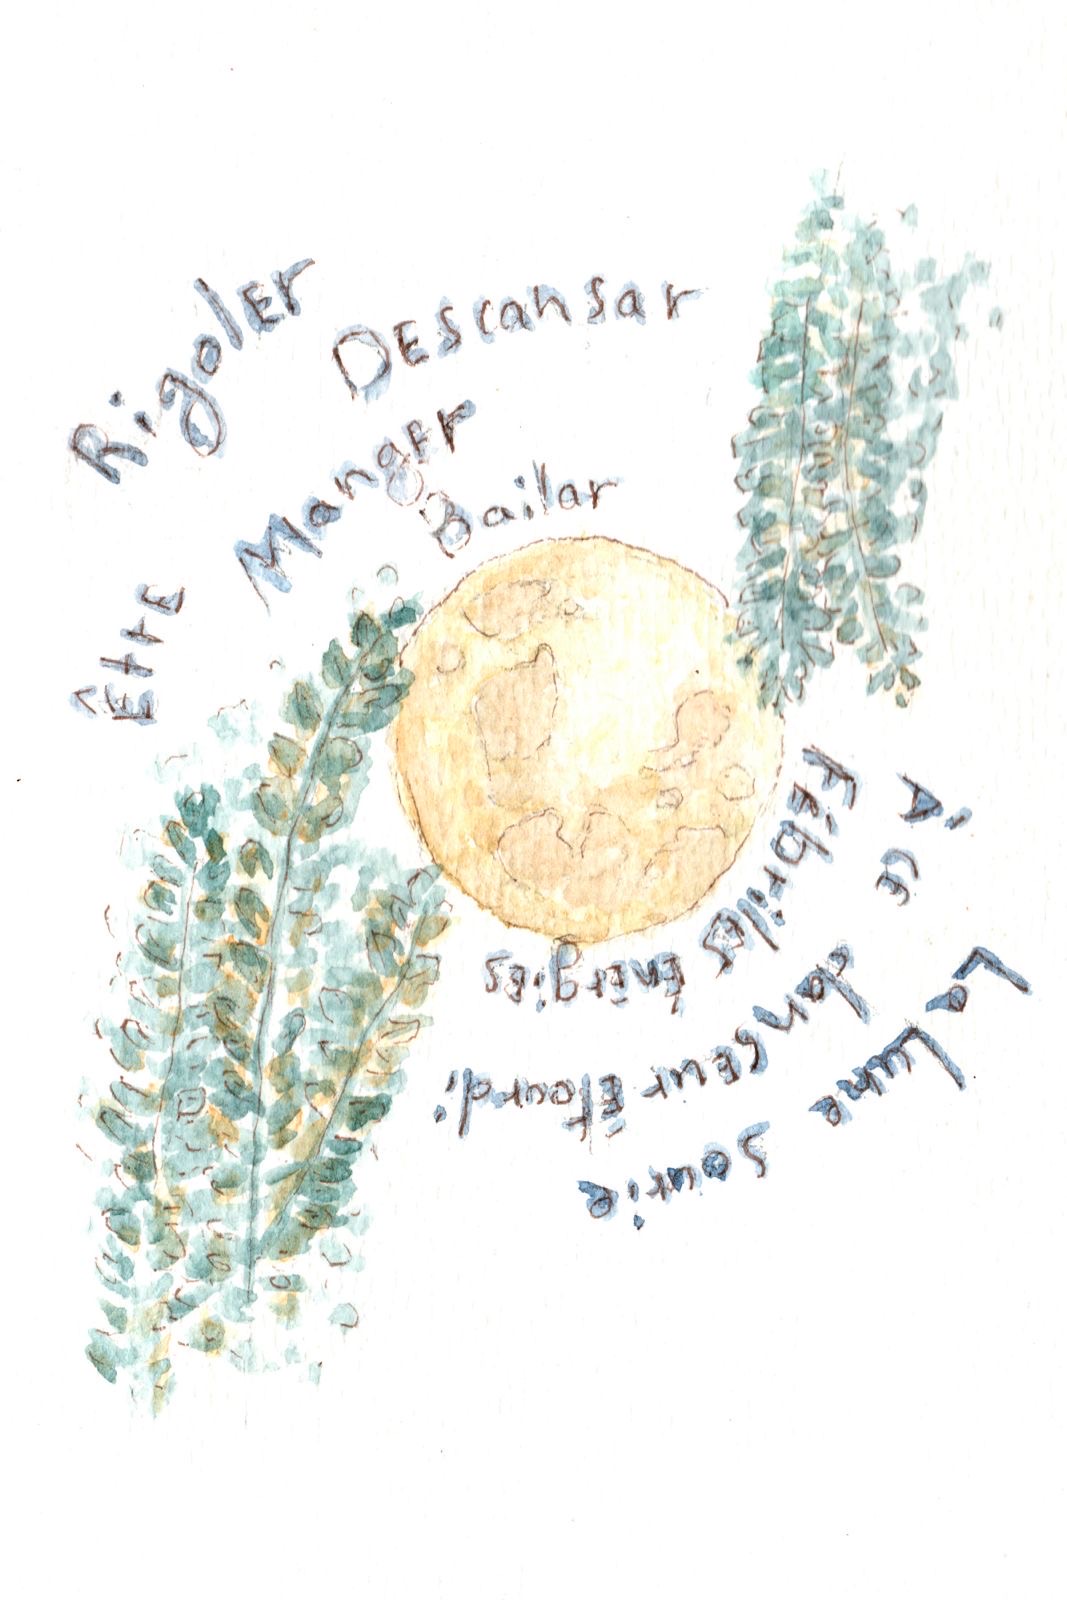 Rigoler Descansar
Être Manger Bailar
La Lune sourie
À ce danseur Étourdi
Fébriles Énergies